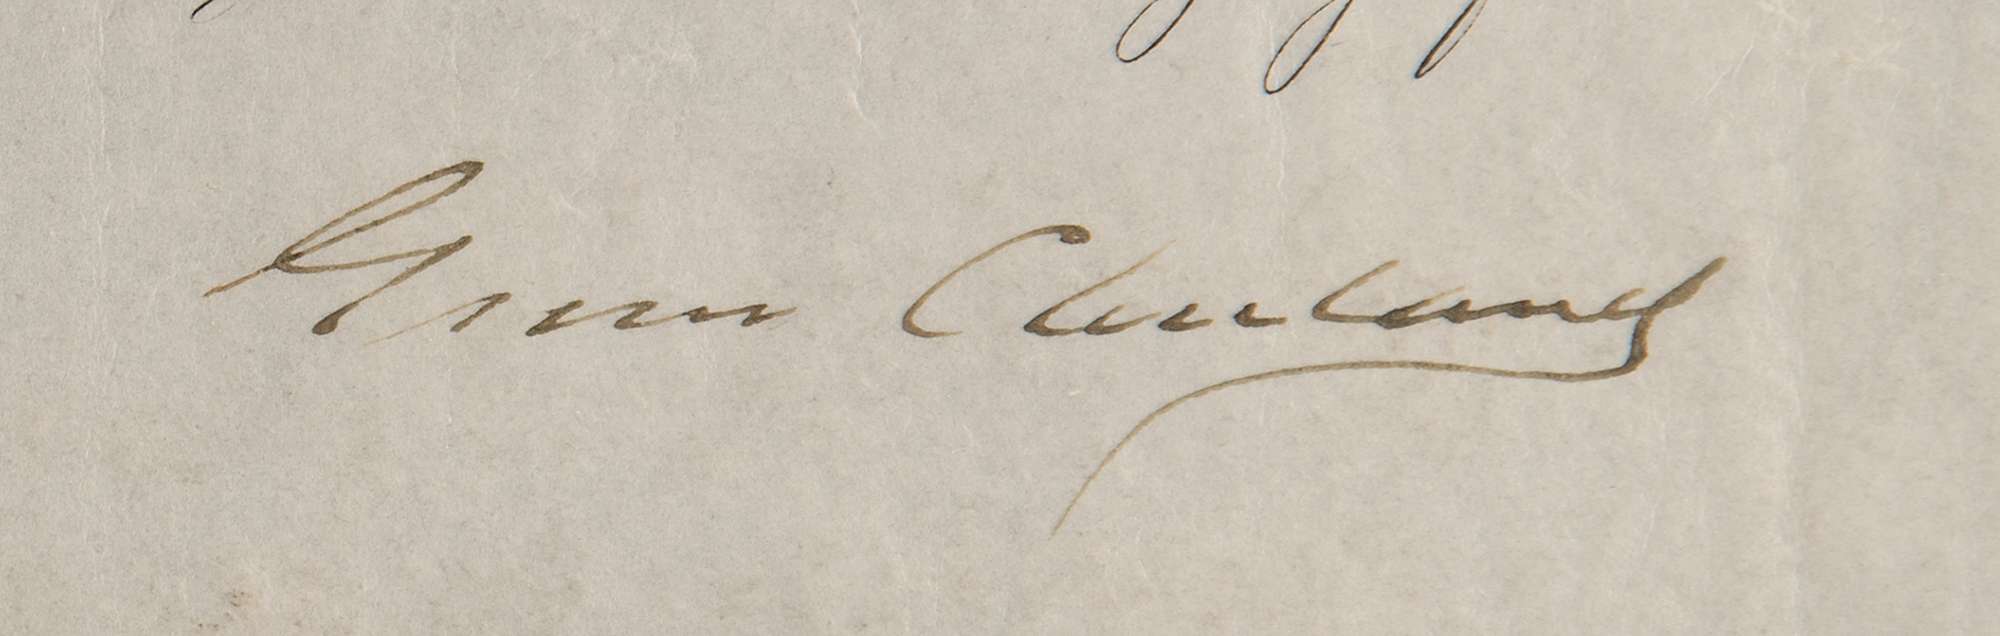 Grover Cleveland